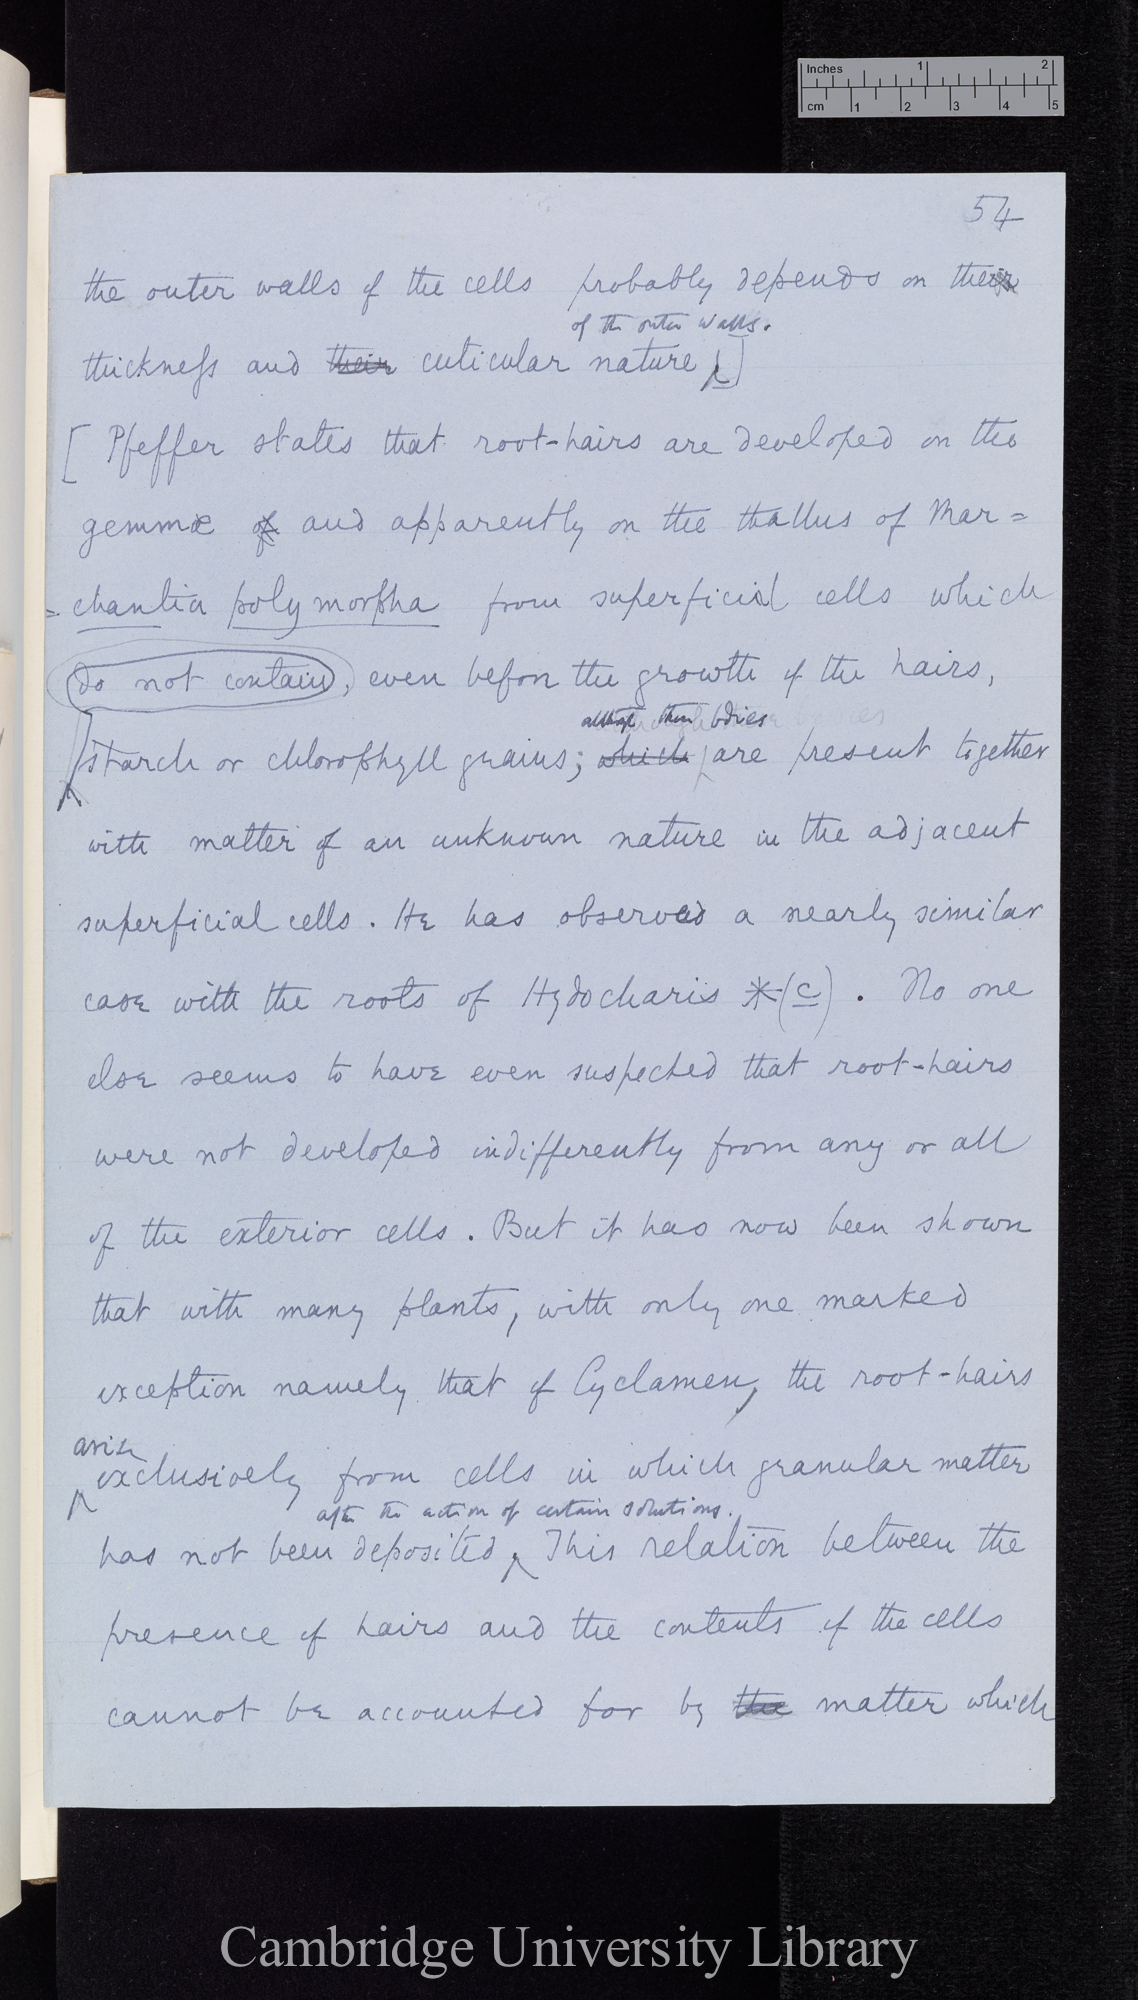 Inches 1 2
cm 1 2 3 4 5
54
the outer walls of the cells probably depends on their
of the outer walls.
thickness and their cuticular nature]
[Pfeffer states that root-hairs are developed on the
gemmæ of and apparently on the thallus of Mar=
=chantia polymorpha from superficial cells which
do not contain, even before the growth of the hairs,
although these bodies
starch or chlorophyll grains; which are present together
with matter of an unknown nature in the adjacent
superficial cells. He has observed a nearly similar
case with the roots of Hydocharis *(c). No one
else seems to have even suspected that root-hairs
were not developed indifferently from any or all
of the exterior cells. But it has now been shown
that with many plants, with only one marked
exception namely that of Cyclamen, the root-hairs
arise
exclusively from cells in which granular matter
after the action of certain solutions.
has not been deposited This relation between the
presence of hairs and the contents of the cells
cannot be accounted for by the matter which
Cambridge University Library